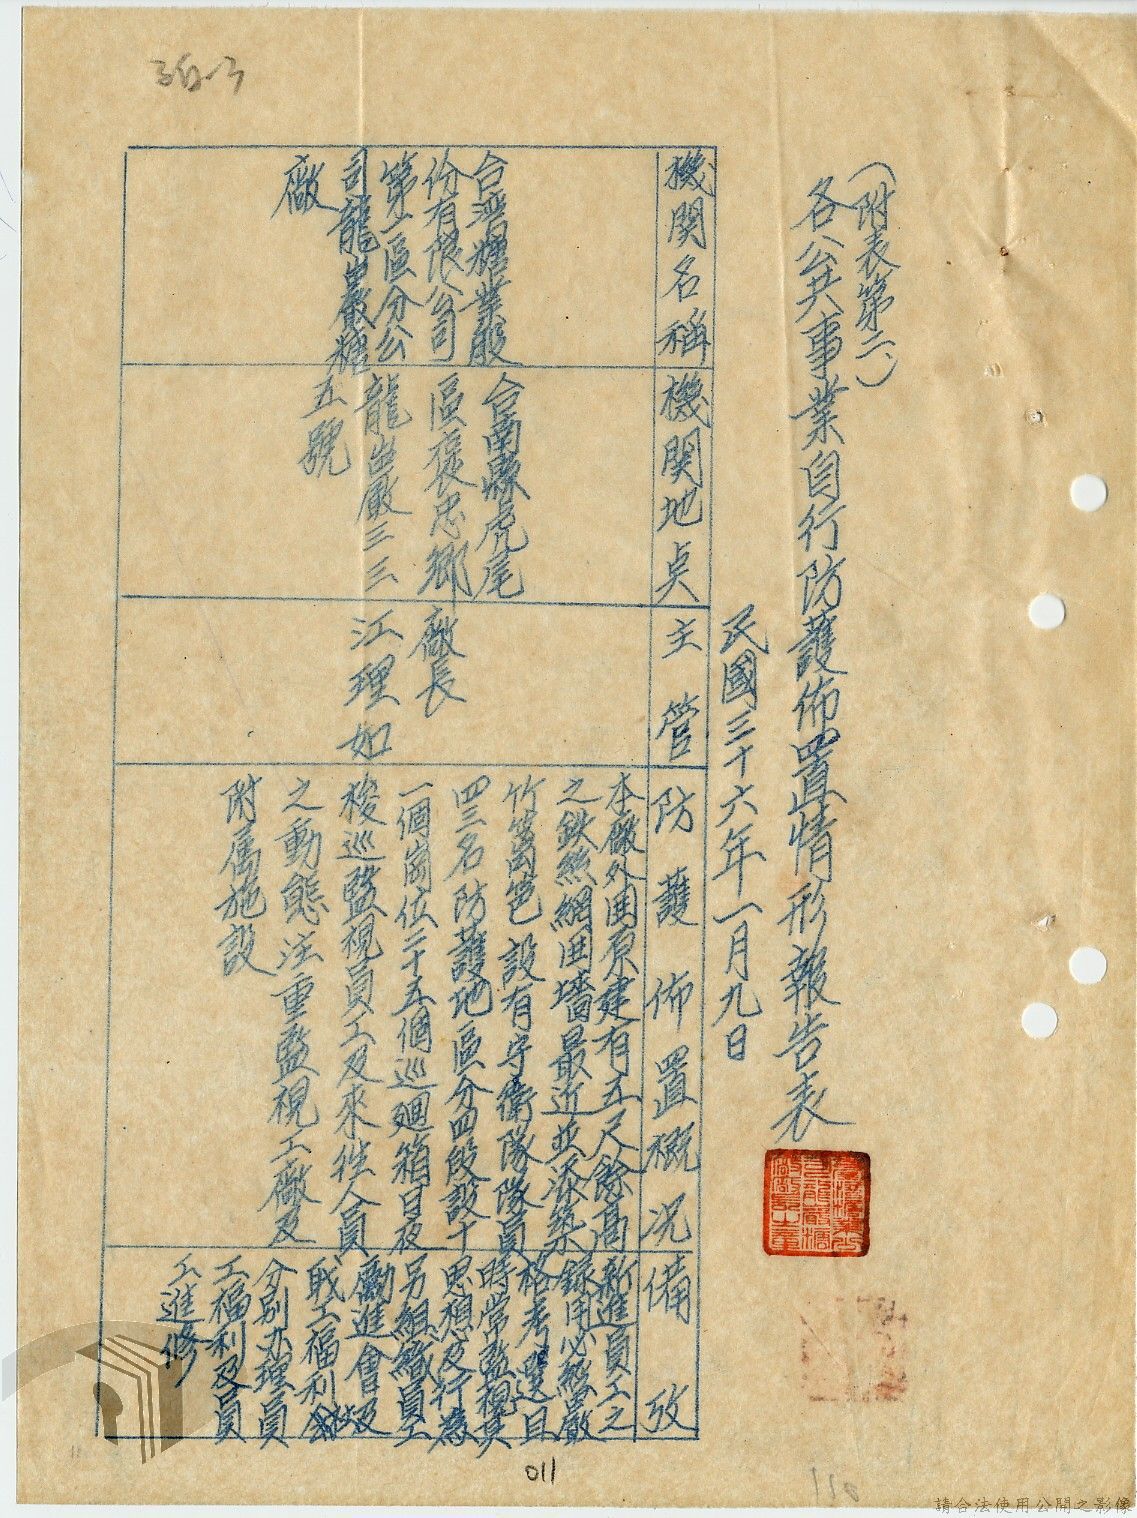 (附表第二、)
各公共事業自行防護佈置情形報告表
民國三十六年一月九日
機関名稱
台湾糖業股
份有限公司
第一區分公
司龍岩厳糖
廠
機関地点
台南縣虎尾
區褒忠鄉
龍岩厳三三
五號
主管
廠長
江理如
防護佈置概况
本廠外囲原建有五尺餘高
之鉄絲網囲墻最近並添築
竹篱笆設有守衛隊隊員
四三名防護地區分四段設十
一個崗位二十五個巡廻箱日夜
梭巡監視員工及來往人員
之動態注重監視工廠及
附属施設
備攷
新進員工之
錄用必經嚴
格考選且
時常監視其
思想及行為
另組織員工
勵進會及
職工福利會
分别办理員
工福利及員
工進修
011
110
請合法使用公開之影像